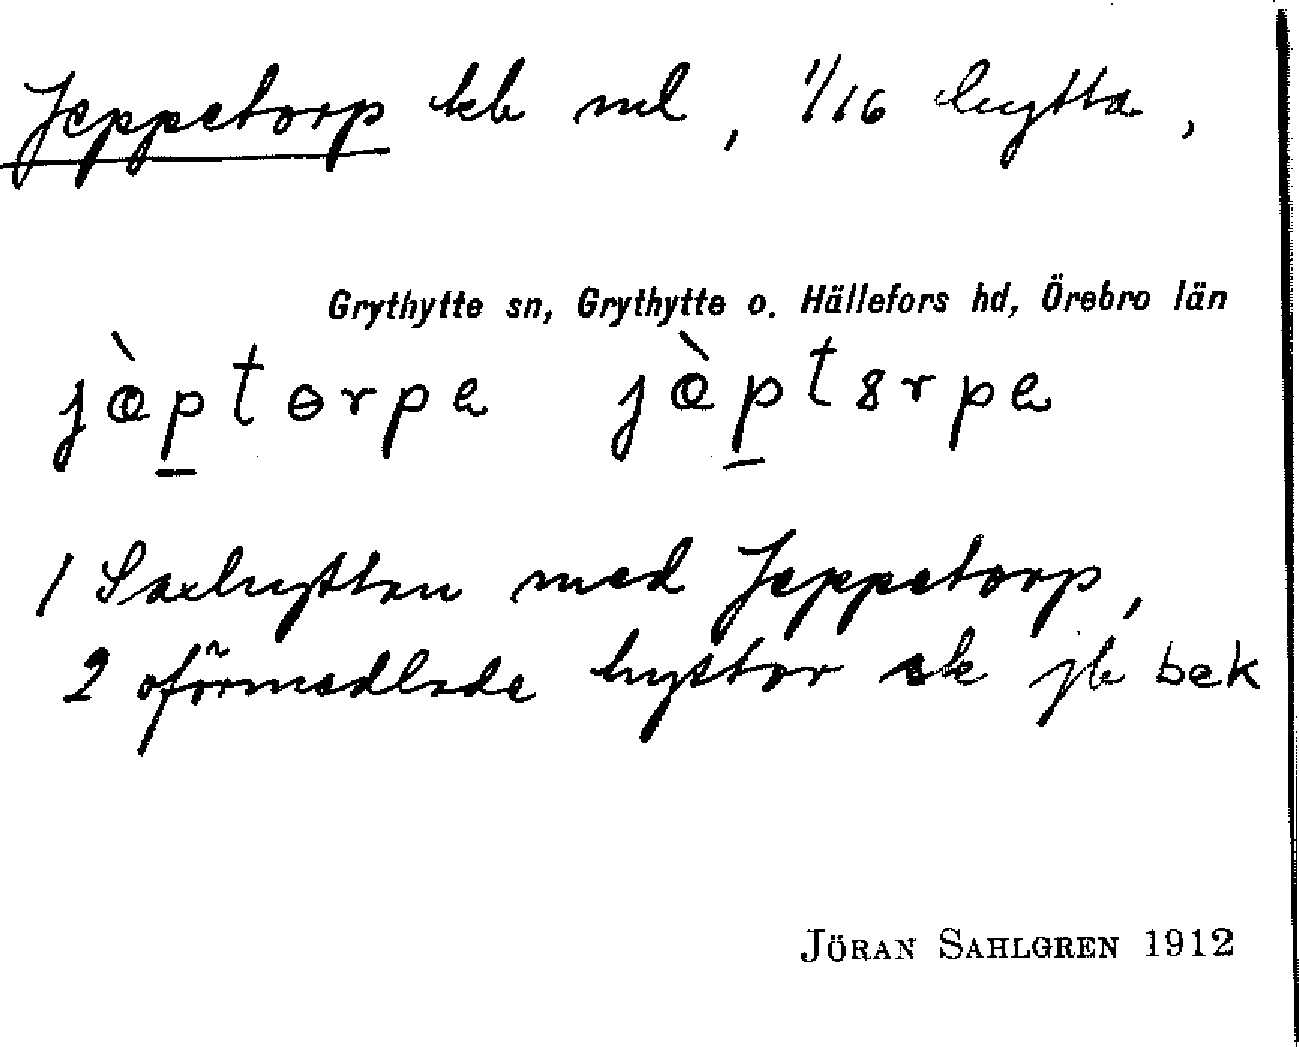 Jeppetorp kb ml, 1/16 hytta,
Grythytte sn, Grythytte o. Hällefors hd, Örebro län
jæ̀p̠tɵrpa jæ̀p̠t8rpa
1 Saxhyttan med Jeppetorp,
2 oförmedlade hyttor sk jb bek
JÖRAN SAHLGREN 1912